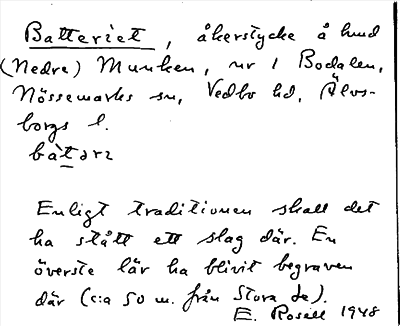 Batteriet, åkerstycke å hmd
(Nedre) Munken, nr 1 Bodalen,
Nössemarks sn, Vedbo hd, Älvs-
borgs l.
Enligt traditionen skall det
ha stått ett slag där. En
överste lär ha blivit begraven
där (c:a 50 m. från Stora Le).
E. Rosell 1948